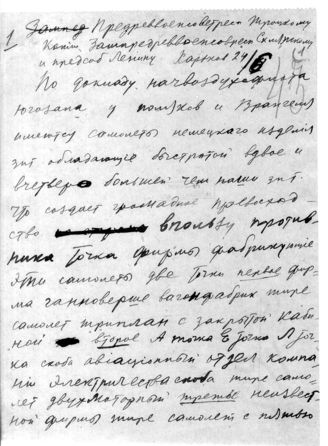 1 Зампед Предреввоенсоветресп Троцкому
Копия Зампредреввоенсовресп Склянскому
и предсов Ленину Харьков 24/6
По докладу начвоздухофлота
Югозапа у поляков и Врангеля
имеются самолеты немецкого изделия
зпт обладающие быстротой вдвое и
вчетверо большей чем наши зпт.
что создает громадное превосход-
ство впользу против-
ника Точка фирмы фабрикующие
эти самолеты две Точки первое фир-
ма ганноверше вагонфабрик тире
самолет триплан с закрытой каби
ной второе А точка Е точка Л точ-
ка скоба авиационный отдел компа
нии электричества скоба тире само-
лет двухмоторный третье неизвест
ной фирмы тире самолет с пятью